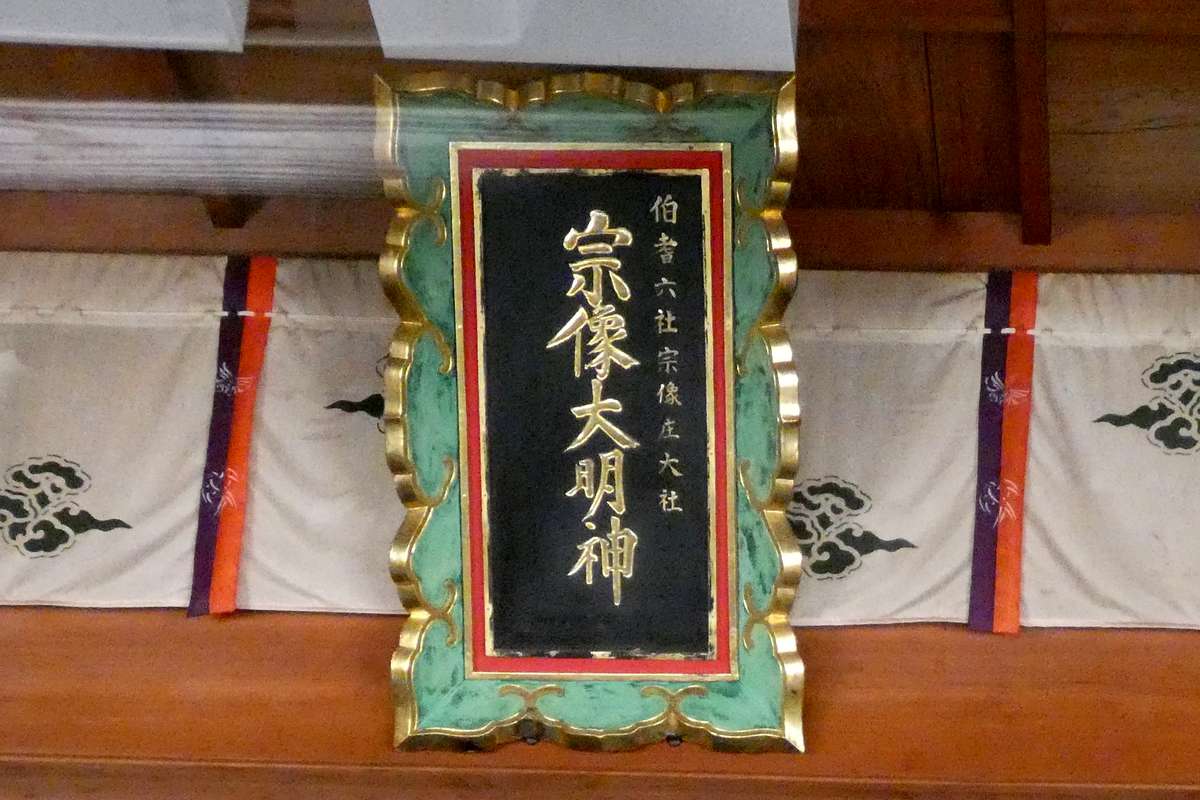 伯耆六社宗像庄大社
宗像大明神